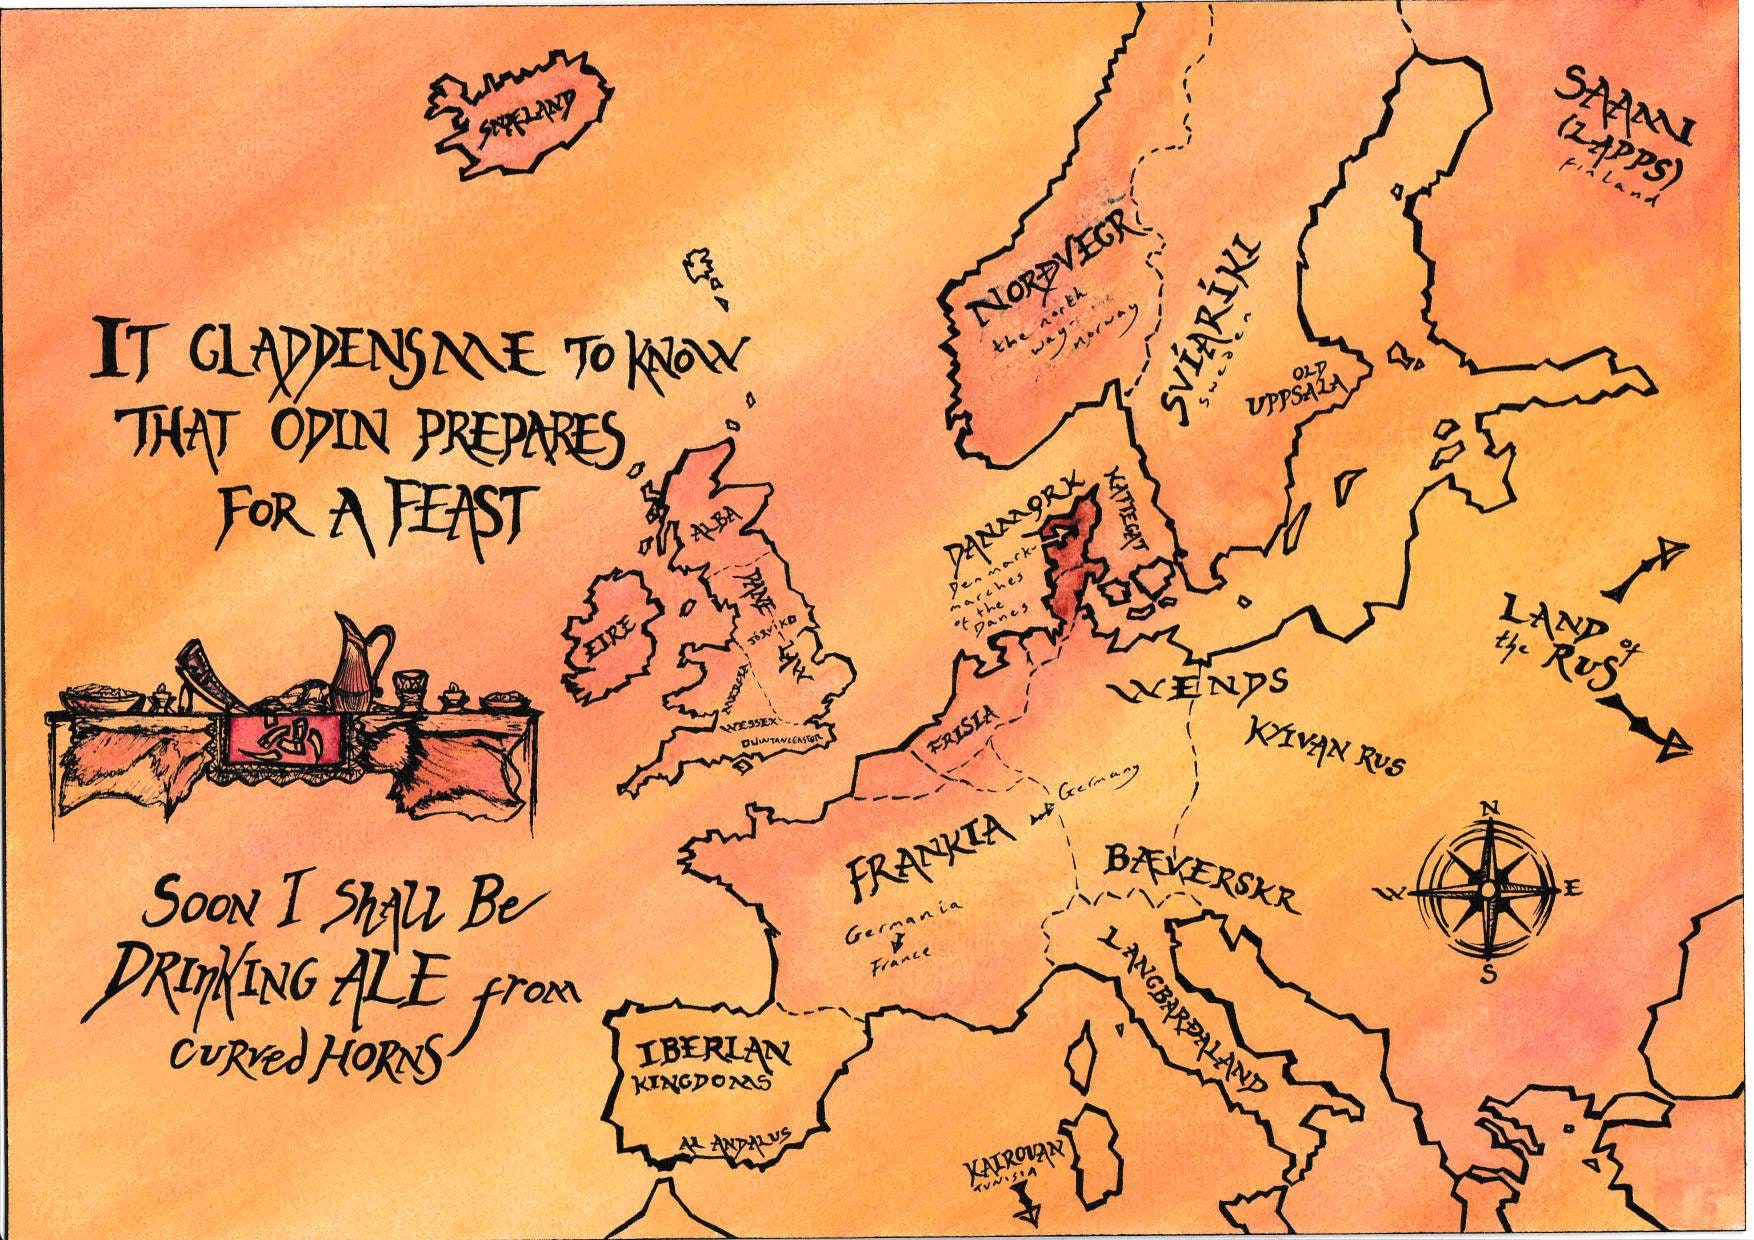 SNÆLAND
SAAMI
(LAPPS)
Finland
NORÐVEGR
the north
way-to the
norway
SVÍARÍKI
Sweden
OLD
UPPSALA
IT GLADDENS ME TO KNOW
THAT ODIN PREPARES
FOR A FEAST
ALBA
DANMORK
Denmark-
marches
of the
Danes
KATTEGAT
EIRE
DANE
JÓRVÍK
LAW
MERCIA
WESSEX
WINTANCEASTER
LAND of
the RUS
WENDS
KYIVAN RUS
FRISIA
Germany
FRANKIA
Germania
France
BÆVERSKR
N
W
E
S
SOON I SHALL BE
DRINKING ALE from
CURVED HORNS
LANGBARÐALAND
IBERIAN
KINGDOMS
AL ANDALUS
KAIROUAN
TUNISIA